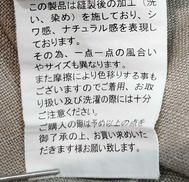 この製品は縫製後の加工（洗
い、染め）を施しており、シ
ワ感、ナチュラル感を表現し
ております。
その為、一点一点の風合い
やサイズも異なります。
また摩擦により色移りする事も
ございますのでご着用、お取
り扱い及び洗濯の際には十分
ご注意ください。
ご購入の際は予め以上の点を
御了承の上、お買い求めいた
だきます様お願い致します。